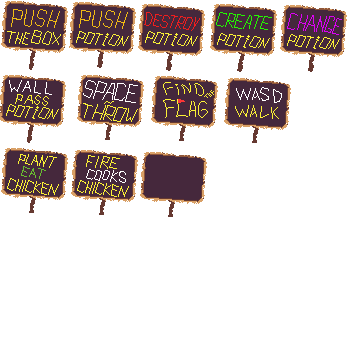 PUSH
THE BOX
PUSH
POTION
DESTROY
POTION
CREATE
POTION
CHANGE
POTION
WALL
PASS
POTION
SPACE
THROW
FIND
FLAG
WASD
WALK
PLANT
EAT
CHICKEN
FIRE
COOKS
CHICKEN